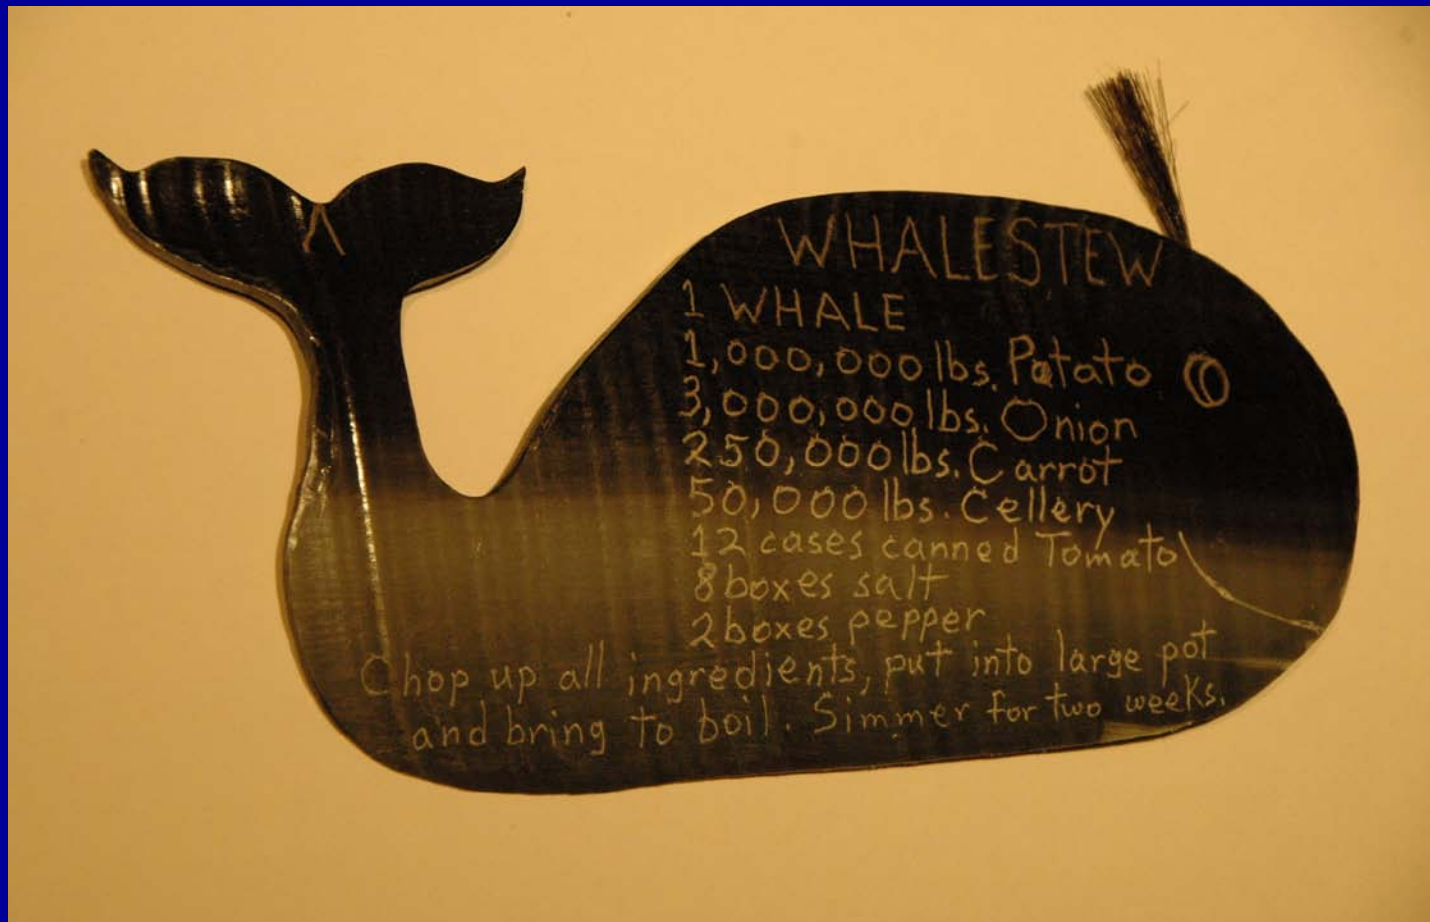 WHALE STEW
1 WHALE
1,000,000 lbs. Potato
3,000,000 lbs. Onion
250,000 lbs. Carrot
50,000 lbs. Cellery
12 cases canned Tomato
8 boxes salt
2 boxes pepper
Chop up all ingredients, put into large pot
and bring to boil. Simmer for two weeks.